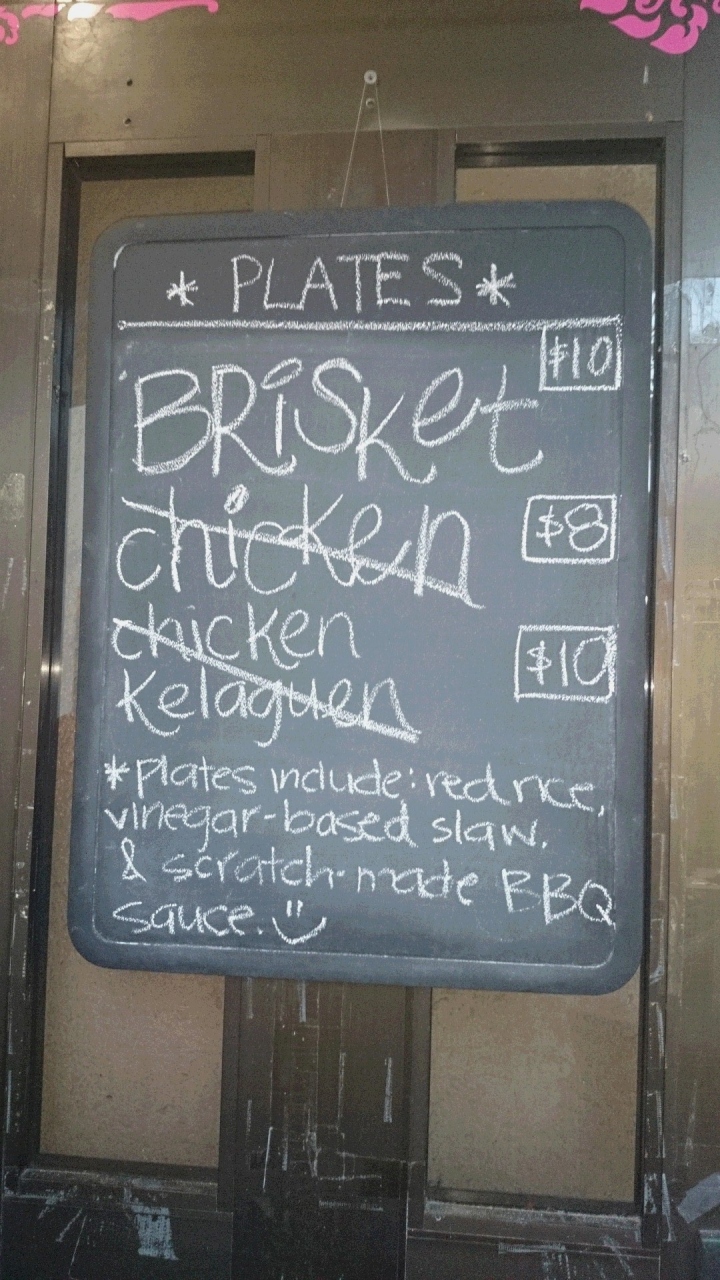 * PLATES *
$10
BRisket
chicken $8
chicken
Kelaguen $10
*Plates include: red rice,
vinegar-based slaw.
& scratch-made BBQ
sauce. :)